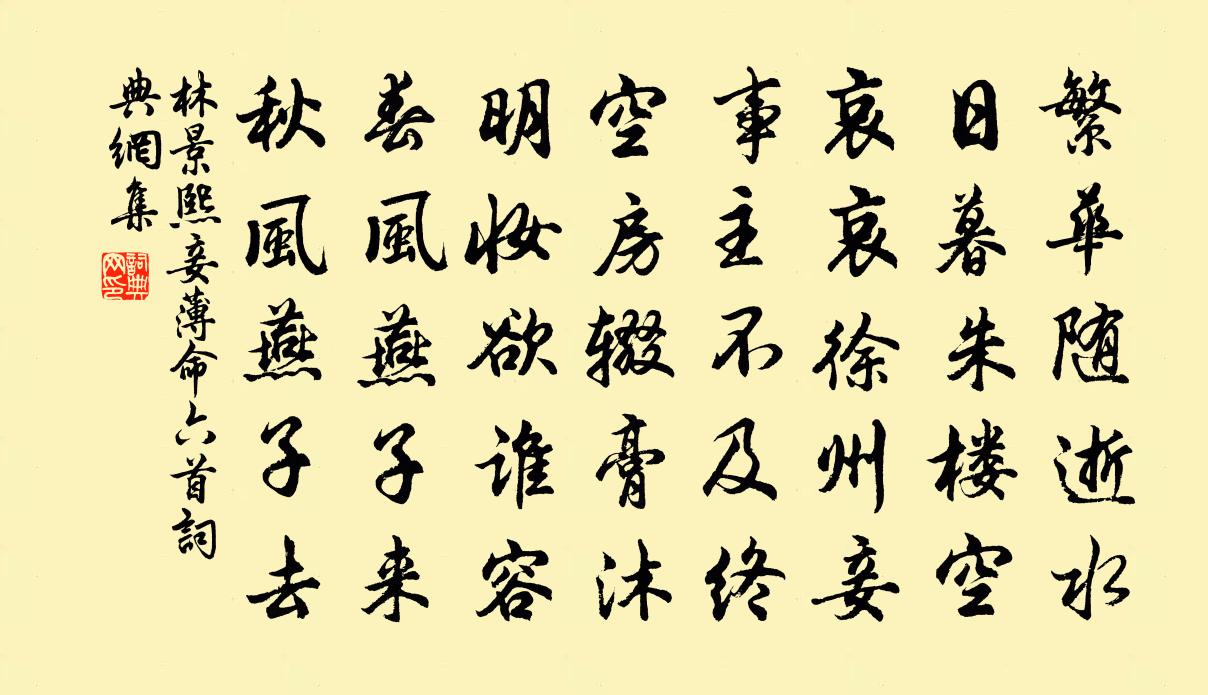 繁華随逝水
日暮朱楼空
哀哀徐州妾
事主不及终
空房辍膏沐
明妆欲谁容
春風燕子来
秋風燕子去
林景熙妾薄命六首詞
典網集
詞典
网印